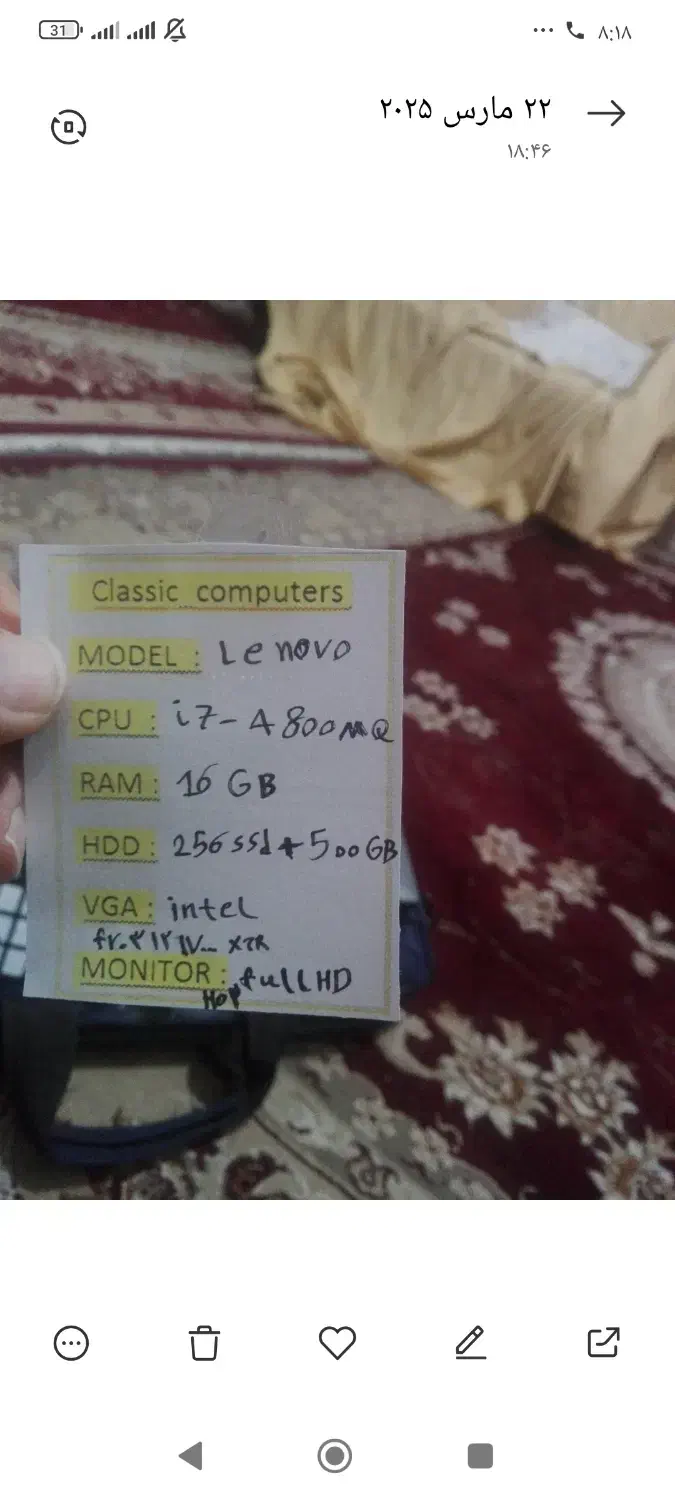 31
۸:۱۸
۲۲ مارس ۲۰۲۵
۱۸:۴۶
Classic computers
MODEL : Lenovo
CPU : i7-4800MQ
RAM : 16 GB
HDD : 256 ssd + 500GB
VGA : intel
MONITOR : full HD